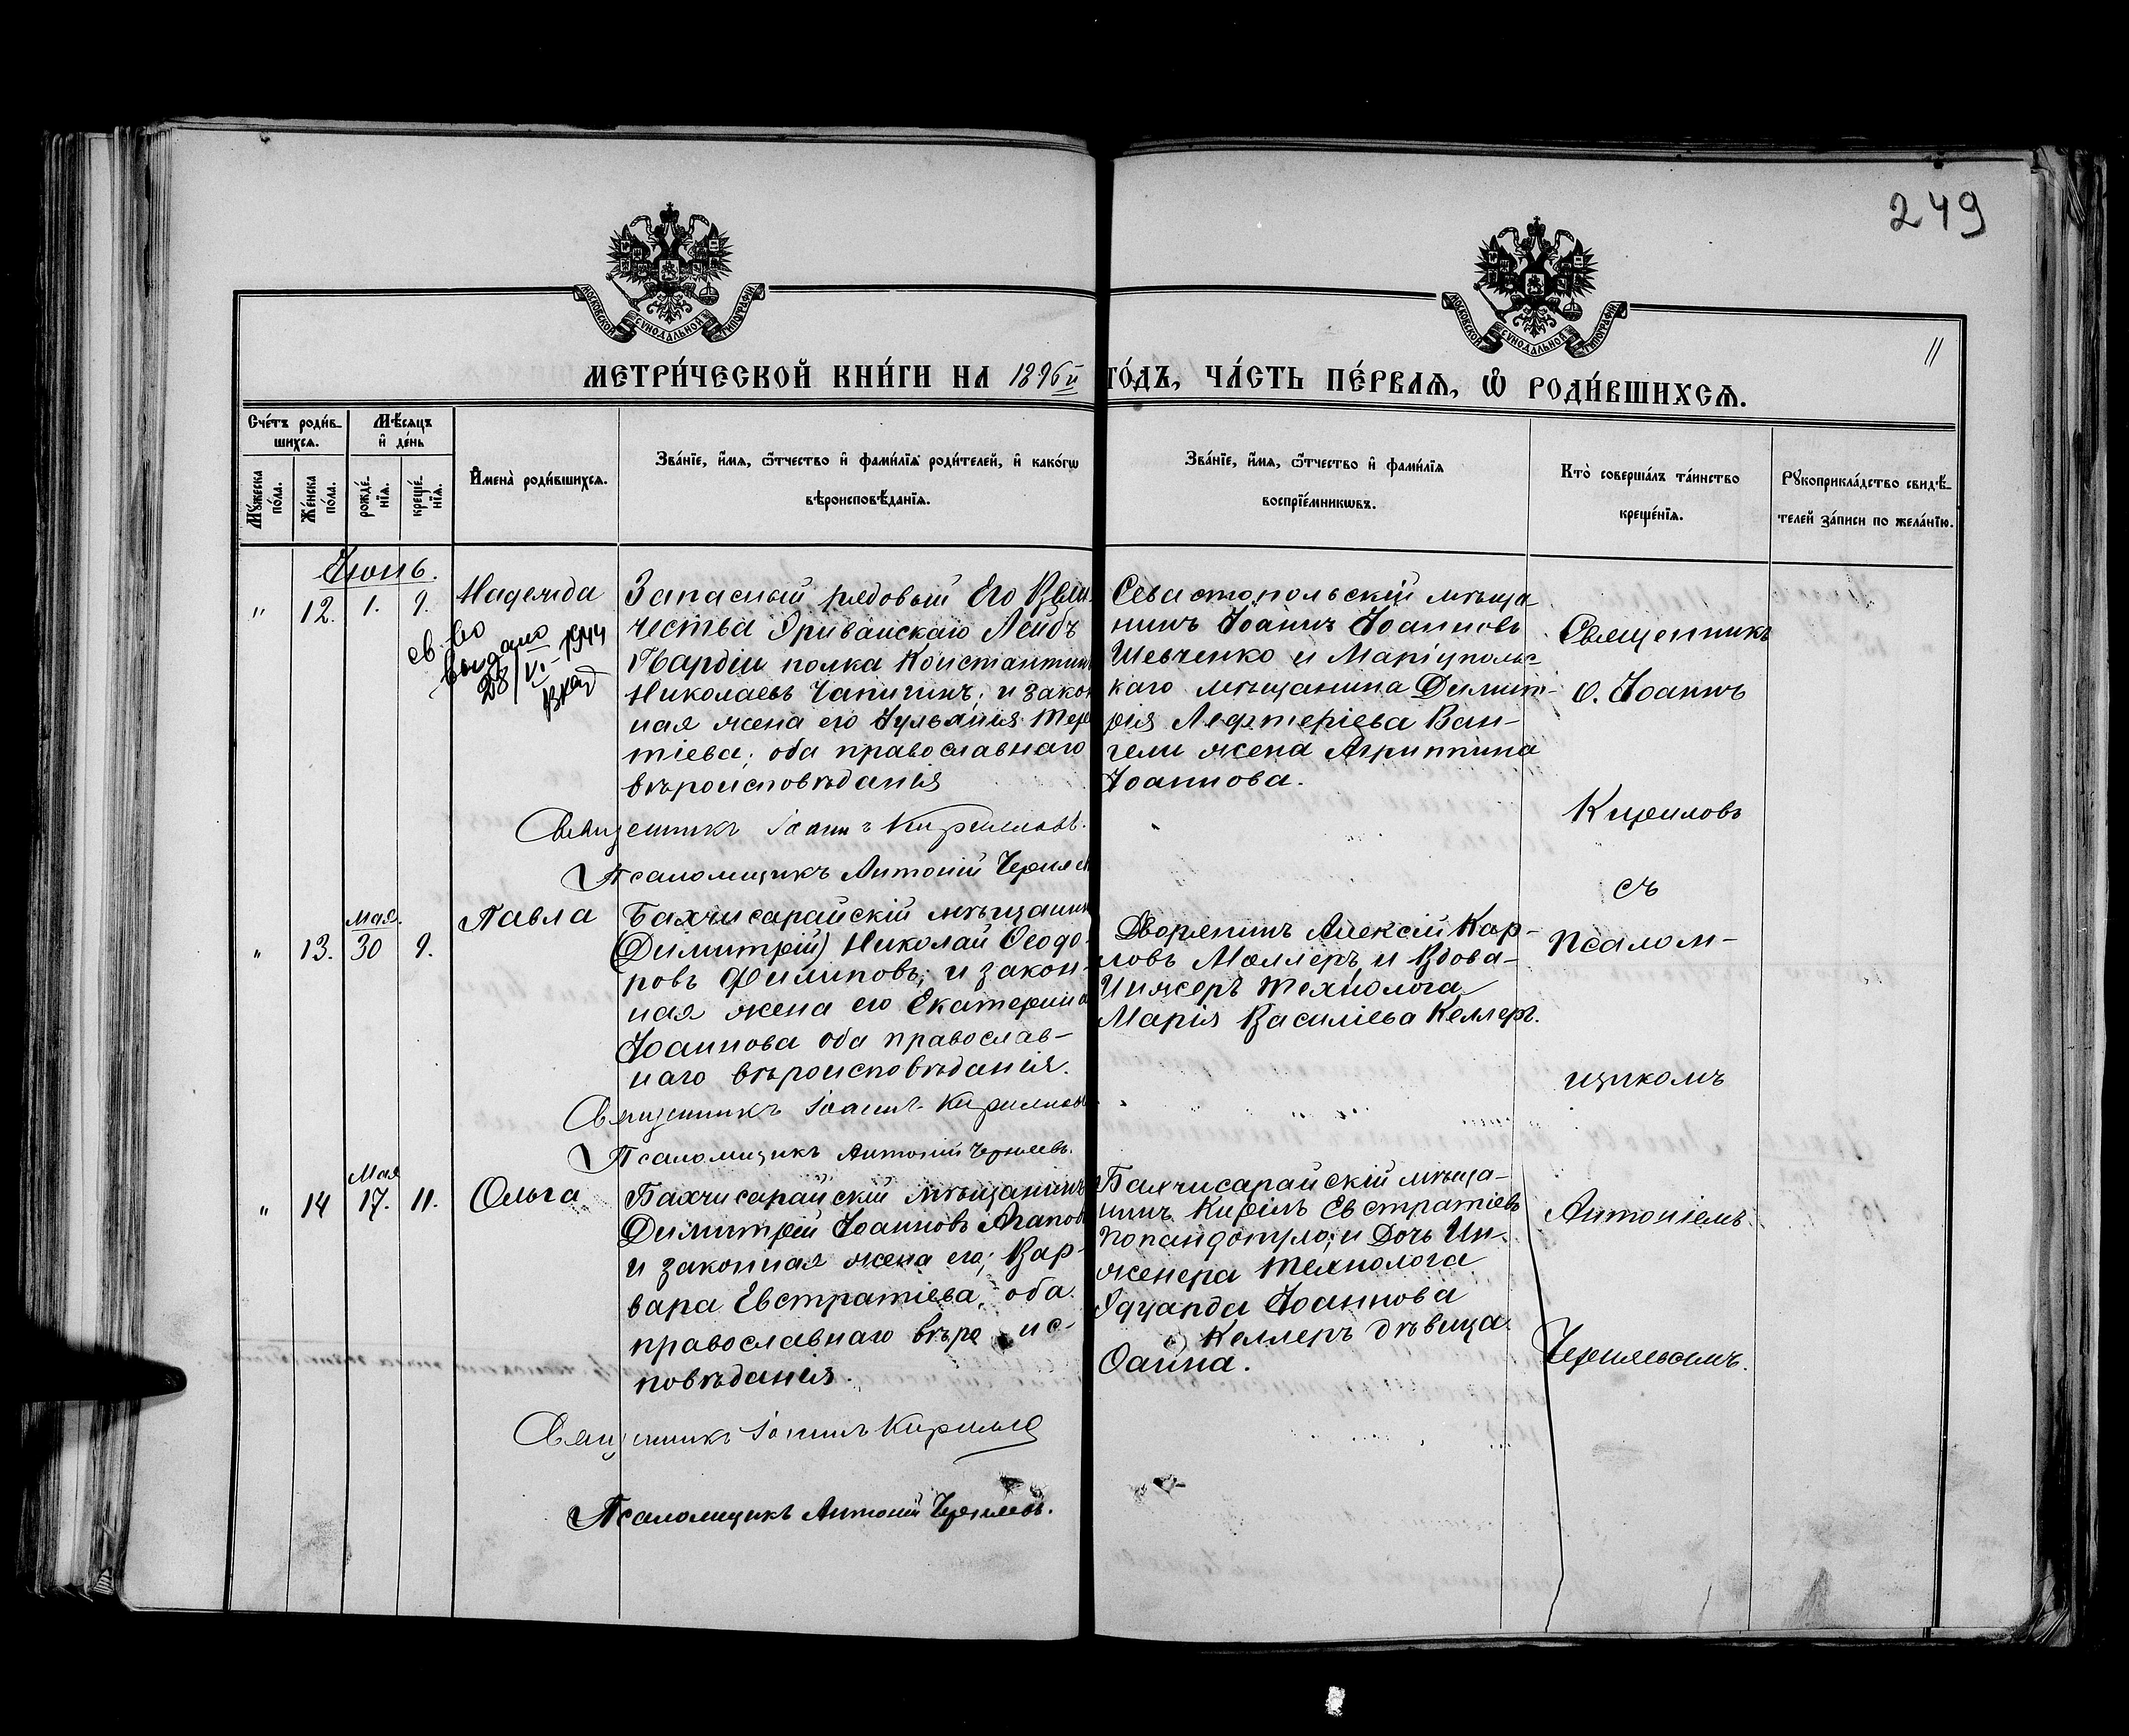 249
11
МОСКОВСКОЙ СѴНОДАЛЬНОЙ ТИПОГРАФІИ
МОСКОВСКОЙ СѴНОДАЛЬНОЙ ТИПОГРАФІИ
МЕТРИ́ЧЕСКОЙ КНИ́ГИ НА 1896й ГО́ДЪ, ЧА́СТЬ ПЕ́РВАѦ, Ѡ҆ РОДИ́ВШИХСѦ.
Сче́тъ роди́в-
шихсѧ.
Мꙋ́жеска по́ла.
Же́нска по́ла.
Мѣ́сѧцъ
и҆ де́нь
рожде́-
нїѧ.
креще́-
нїѧ.
И҆мена̀ роди́вшихсѧ.
Зва́нїе, и҆́мѧ, ѻ҆́тчество и҆ фами́лїѧ роди́телей, и҆ како́гѡ
вѣроисповѣ́данїѧ.
Зва́нїе, и҆́мѧ, ѻ҆́тчество и҆ фами́лїѧ
воспрїе́мникѡвъ.
Кто̀ соверша́лъ та́инство
креще́нїѧ.
Рꙋкоприкла́дство свидѣ́-
телей за́писи по жела́нїю.
Іюнь.
" 12. 1. 9. Надежда
св-во
выдано
28/VI-1944
Запасный рядовый Его Вели-
чества Эриванскаго Лейбъ
Гвардіи полка Константинъ
Николаевъ Чапигинъ, и закон
ная жена его Іульянія Тере
тіева; оба православнаго
вѣроисповѣданія
Севастопольскій мѣща-
нинъ Іоаннъ Іоанновъ
Шевченко и Маріупольс-
каго мѣщанина Димит-
рія Лефтеріева Ван-
гели жена Агриппина
Іоаннова.
Священникъ Іоаннъ Кирилловъ.
Псаломщикъ Антоній Черняев
" 13. Мая. 30 9. Павла
Бахчисарайскій мѣщанин
(Димитрій) Николай Ѳеодо-
ровъ Филиповъ; и закон-
ная жена его Екатерина
Іоаннова оба православ-
наго вѣроисповѣданія.
Дворянинъ Алексій Кар-
ловъ Мѳллеръ и Вдова-
Инжеръ Технолога
Марія Василіева Келлеръ.
Священникъ Іоаннъ Кирилловъ
Псаломщикъ Антоній Черняевъ.
" 14 Мая 17. 11. Ольга
Бахчисарайскій мѣщанинъ
Димитрій Іоанновъ Агапов
и законная жена его; Вар-
вара Евстратіева, оба
православнаго вѣро ис-
повѣданія.
Бахчисарайскій мѣща-
нинъ Кирілъ Евстратіевъ
Попандопуло; и Дочь Ин-
женера Технолога
Эдуарда Іоаннова
Келлеръ дѣвица
Священникъ Іоаннъ Кирилло
Псаломщикъ Антоній Черняевъ.
Священникъ
о. Іоаннъ
Кириловъ
съ
Псалом-
щикомъ
Антоніемъ
Черняевымъ.